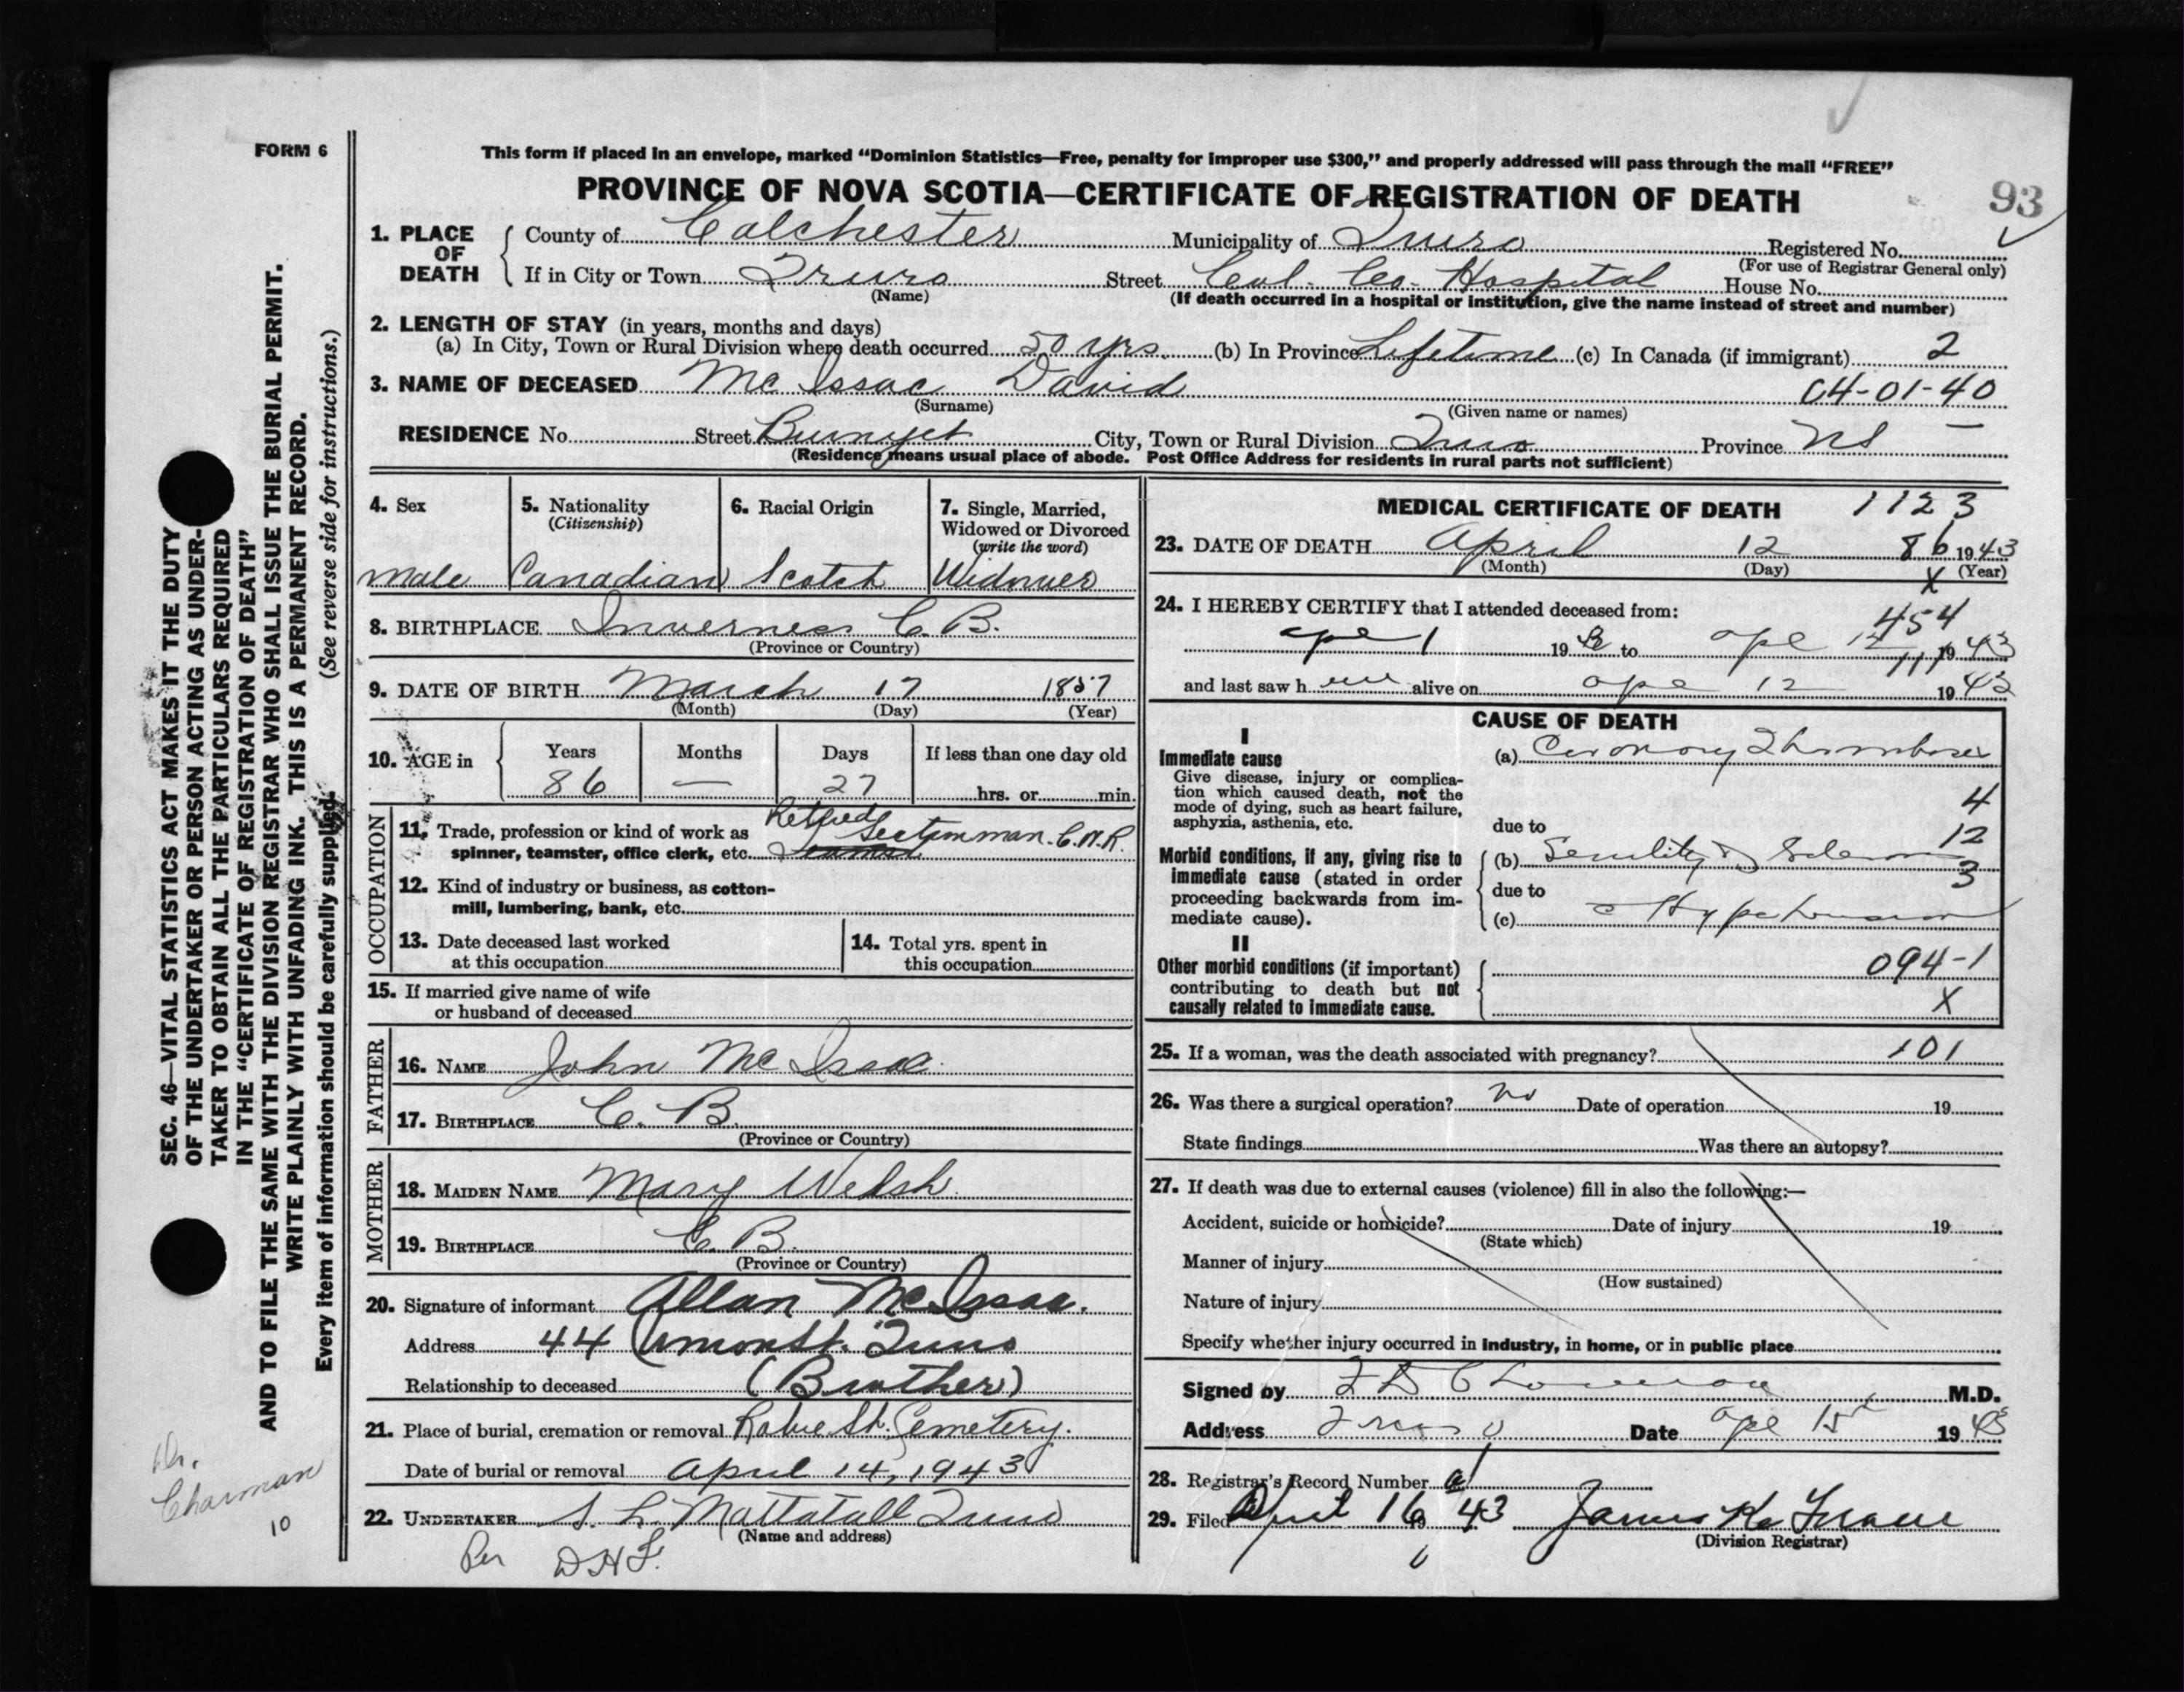 FORM 6
93
This form if placed in an envelope, marked “Dominion Statistics—Free, penalty for improper use $300,” and properly addressed will pass through the mail “FREE”
PROVINCE OF NOVA SCOTIA—CERTIFICATE OF REGISTRATION OF DEATH
1. PLACE OF DEATH County of Colchester Municipality of Truro Registered No.
(For use of Registrar General only)
If in City or Town Truro Street Col. Co. Hospital House No.
(Name) (If death occurred in a hospital or institution, give the name instead of street and number)
2. LENGTH OF STAY (in years, months and days)
(a) In City, Town or Rural Division where death occurred 50 yrs. (b) In Province Lifetime (c) In Canada (if immigrant) 2
3. NAME OF DECEASED Mc Issac David 04-01-40
(Surname) (Given name or names)
RESIDENCE No. Street City, Town or Rural Division Truro Province NS –
(Residence means usual place of abode. Post Office Address for residents in rural parts not sufficient)
4. Sex
Male
5. Nationality
(Citizenship)
Canadian
6. Racial Origin
Scotch
7. Single, Married,
Widowed or Divorced
(write the word)
Widower
8. BIRTHPLACE Inverness C. B.
(Province or Country)
9. DATE OF BIRTH March 17 1857
(Month) (Day) (Year)
10. AGE in Years Months Days If less than one day old
86 — 27 hrs. or min.
OCCUPATION
11. Trade, profession or kind of work as Retired Sectionman. C.N.R.
spinner, teamster, office clerk, etc.
12. Kind of industry or business, as cotton-
mill, lumbering, bank, etc.
13. Date deceased last worked
at this occupation
14. Total yrs. spent in
this occupation
15. If married give name of wife
or husband of deceased
FATHER
16. NAME John Mc Isaac
17. BIRTHPLACE C. B.
(Province or Country)
MOTHER
18. MAIDEN NAME Mary Welsh
19. BIRTHPLACE C. B.
(Province or Country)
20. Signature of informant Allan McIsaac.
Address 44 St. Truro
Relationship to deceased (Brother)
21. Place of burial, cremation or removal Robie St. Cemetery.
Date of burial or removal April 14, 1943
22. UNDERTAKER S. L. Mattatall Truro
(Name and address)
Per D H F.
MEDICAL CERTIFICATE OF DEATH 1123
23. DATE OF DEATH April 12 86 1943
(Month) (Day) X (Year)
24. I HEREBY CERTIFY that I attended deceased from:
454
apl 1 19 43 to apl 12 1943
111
and last saw h im alive on apl 12 1943
CAUSE OF DEATH
I
Immediate cause
Give disease, injury or complica-
tion which caused death, not the
mode of dying, such as heart failure,
asphyxia, asthenia, etc.
(a) Coronary Thrombosis
4
due to
12
Morbid conditions, if any, giving rise to
immediate cause (stated in order
proceeding backwards from im-
mediate cause).
(b) Senility
3
due to
(c) c Hypertension
II
Other morbid conditions (if important)
contributing to death but not
causally related to immediate cause.
094-1
X
25. If a woman, was the death associated with pregnancy? 101
26. Was there a surgical operation? no Date of operation 19
State findings Was there an autopsy?
27. If death was due to external causes (violence) fill in also the following:—
Accident, suicide or homicide? Date of injury 19
(State which)
Manner of injury
(How sustained)
Nature of injury
Specify whether injury occurred in industry, in home, or in public place
Signed by M.D.
Address Truro Date apl 15 1943
28. Registrar's Record Number
29. Filed April 16 19 43 James K.
(Division Registrar)
SEC. 46—VITAL STATISTICS ACT MAKES IT THE DUTY
OF THE UNDERTAKER OR PERSON ACTING AS UNDER-
TAKER TO OBTAIN ALL THE PARTICULARS REQUIRED
IN THE “CERTIFICATE OF REGISTRATION OF DEATH”
AND TO FILE THE SAME WITH THE DIVISION REGISTRAR WHO SHALL ISSUE THE BURIAL PERMIT.
WRITE PLAINLY WITH UNFADING INK. THIS IS A PERMANENT RECORD.
Every item of information should be carefully supplied. (See reverse side for instructions.)
Dr.
Charman
10